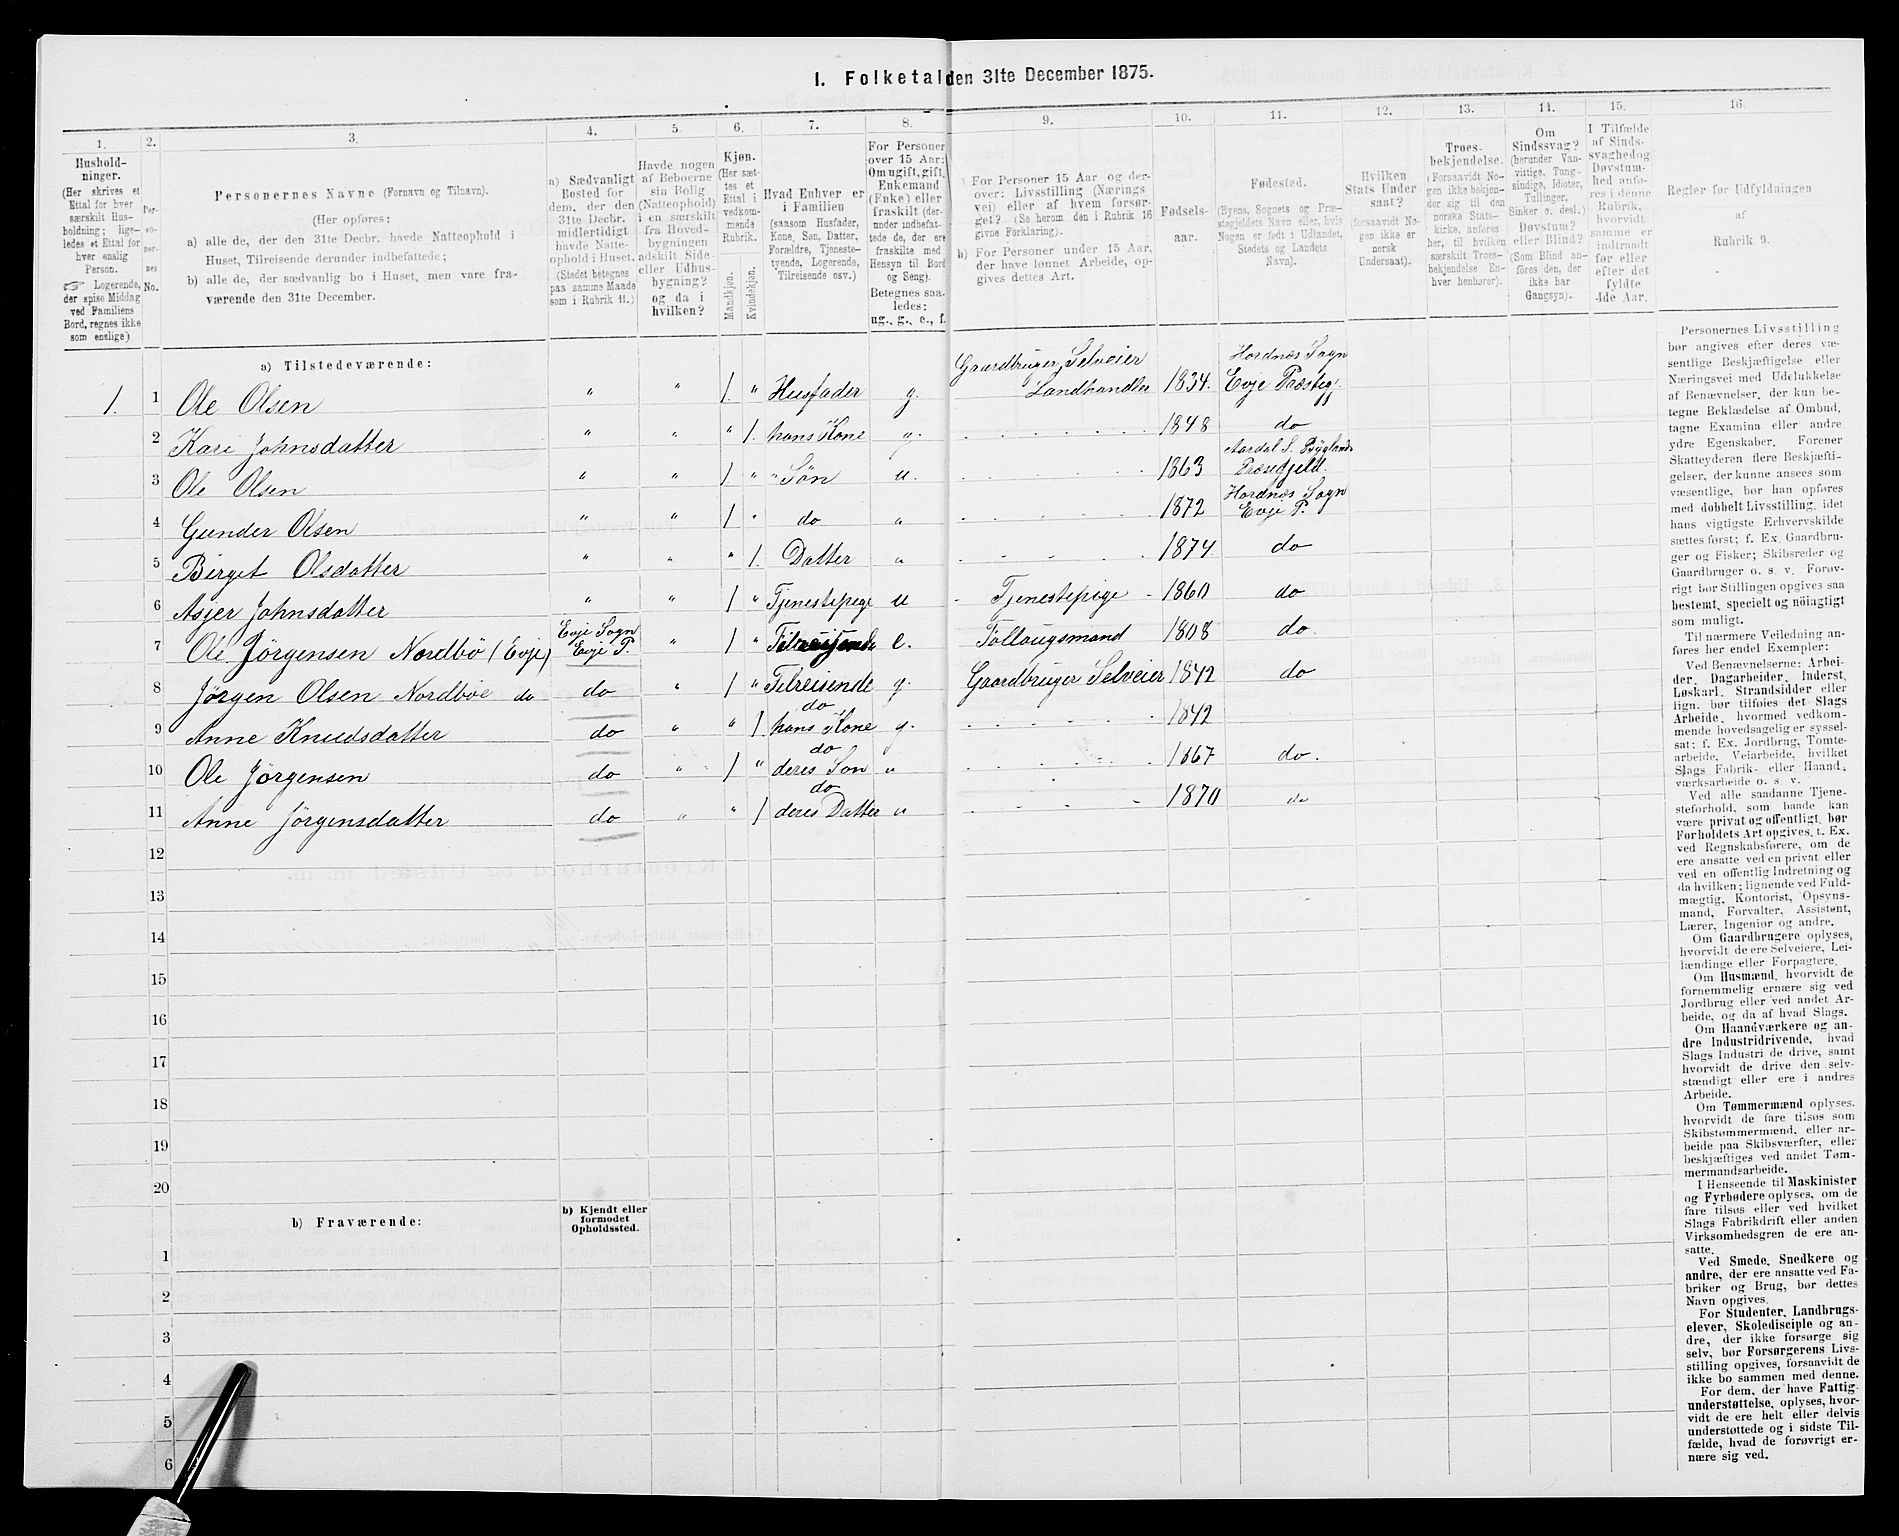 1. Folketal den 31te December 1875.
1. 2. 3. 4. 5. 6. 7. 8. 9. 10. 11. 12. 13. 14. 15. 16
Hushold-
ninger.
(Her skrives et
Ettal for hver
særskilt Hus-
holdning; lige-
ledes et Ettal for
hver enslig
Person.
☞ Logerende,
der spise Middag
ved Familiens
Bord, regnes ikke
som enslige)
Per-
so-
ner-
nes
No.
Personernes Navne (Fornavn og Tilnavn).
(Her opføres:
a) alle de, der den 31te Decbr. havde Natteophold i
Huset, Tilreisende derunder indbefattede;
b) alle de, der sædvanlig bo i Huset, men vare fra-
værende den 31te December.
a) Sædvanligt
Bosted for
dem, der den
31te Decbr.
midlertidigt
havde Natte-
ophold i Huset.
(Stedet betegnes
paa samme Maade
som i Rubrik 11.)
Havde nogen
af Beboerne
sin Bolig
(Natteophold)
i en særskilt
fra Hoved-
bygningen
adskilt Side-
eller Udhus-
bygning?
og da i
hvilken?
Kjøn.
(Her sæt-
tes et
Ettal i
vedkom-
mende
Rubrik.
Mandkjøn.
Kvindekjøn.
Hvad Enhver er
i Familien
(saasom Husfader,
Kone, Søn, Datter,
Forældre, Tjeneste-
tyende, Logerende,
Tilreisende osv.)
For Personer
over 15 Aar:
Om ugift, gift,
Enkemand
(Enke) eller
fraskilt (der-
under indbefat-
tede de, der ere
fraskilte med
Hensyn til Bord
og Seng).
Betegnes saa-
ledes:
ug., g., e., f.
a) For Personer 15 Aar og der-
over: Livsstilling (Nærings
vei) eller af hvem forsør-
get? (Se herom den i Rubrik 16
givne Forklaring).
b) For Personer under 15 Aar,
der have lønnet Arbeide, op-
gives dettes Art.
Fødsels-
aar.
Fødested.
(Byens, Sognets og Præ-
stegjeldets Navn eller, hvis
Nogen er født i Udlandet,
Stedets og Landets
Navn).
Hvilken
Stats Under-
saat?
(forsaavidt No-
gen ikke er
norsk
Undersaat).
Troes-
bekjendelse.
(Forsaavidt No-
gen ikke bekjen-
der sig til den
norske Stats-
kirke, anføres
her, til hvilken
særskilt Troes-
bekjendelse En-
hver henhører).
Om
Sindssvag?
(herunder Van-
vittige, Tung-
sindige, Idioter,
Tullinger,
Sinker o. desl.)
Døvstum?
eller Blind?
(Som Blind an-
føres den, der
ikke har
Gangsyn).
I Tilfælde
af Sinds-
svaghed og
Døvstum-
hed anfø-
res i denne
Rubrik,
hvorvidt
samme er
indtraadt
før eller
efter det
fyldte
4de Aar.
Regler for Udfyldningen
af
Rubrik 9.
a) Tilstedeværende:
1. 1 Ole Olsen " " 1. " Husfader g. Gaardbruger, Selveier Landhandler 1834. Hordnæs Sogn Evje Præsteg.
2 Kari Johnsdatter " " " 1. hans Kone g. 1848 do
3 Ole Olsen " " 1 " " Søn u. 1863 Aardal S. Byglands Præstegjeld.
4 Gunder Olsen " " 1 " do " 1872 Hordnæs Sogn Evje P.
5 Birget Olsdatter " " " 1. Datter " 1874 do
6 Asjer Johnsdatter " " 1 " Tjenestepige u Tjenestepige 1860 do
7 Ole Jørgensen Nordbø (Evje) Evje Sogn Evje P. " 1 " Tilreisende e. Follaugsmand 1808 do.
8 Jørgen Olsen Nordbøe do do " 1 " Tilreisende g. Gaardbruger Selveier 1842 do
9 Anne Knudsdatter do " " 1 do hans Kone g. 1842
10 Ole Jørgensen do " 1 " do deres Søn u 1867 do.
11 Anne Jørgensdatter do " " 1 do deres Datter u 1870 do
12
13
14
15
16
17
18
19
20
b) Fraværende:
b) Kjendt eller
formodet
Opholdssted.
1
2
3
4
5
6
Personernes Livsstilling
bør angives efter deres væ-
sentlige Beskjæftigelse eller
Næringsvei med Udelukkelse
af Benævnelser, der kun be-
tegne Beklædelse af Ombud,
tagne Examina eller andre
ydre Egenskaber. Forener
Skatteyderen flere Beskjæfti-
gelser, der kunne ansees som
væsentlige, bør han opføres
med dobbelt Livsstilling, idet
hans vigtigste Erhvervskilde
sættes først; f. Ex. Gaardbru-
ger og Fisker; Skibsreder og
Gaardbruger o. s. v. Forøv-
rigt bør Stillingen opgives saa
bestemt, specielt og nöiagtigt
som muligt.
Til nærmere Veiledning an-
føres her endel Exempler:
Ved Benævnelserne: Arbei-
der, Dagarbeider, Inderst,
Løskarl, Strandsidder eller
lign. bør tilføies det Slags
Arbeide, hvormed vedkom-
mende hovedsagelig er syssel-
sat; f. Ex. Jordbrug, Tomte-
arbeide, Veiarbeide, hvilket
Slags Fabrik- eller Haand-
værksarbeide o. s. v.
Ved alle saadanne Tjene-
steforhold, som baade kan
være privat og offentligt, bør
Forholdets Art opgives, t. Ex.
ved Regnskabsførere, om de
ere ansatte ved en privat eller
ved en offentlig Indretning og
da hvilken; lignende ved Fuld-
mægtig, Kontorist, Opsyns-
mand, Forvalter, Assistent,
Lærer, Ingeniør og andre.
Om Gaardbrugere oplyses,
hvorvidt de ere Selveiere, Lei-
lændinge eller Forpagtere.
Om Husmænd, hvorvidt de
fornemmelig ernære sig ved
Jordbrug eller ved andet Ar-
beide, og da af hvad Slags.
Om Haandværkere og an-
dre Industridrivende, hvad
Slags Industri de drive, samt
hvorvidt de drive den selv-
stændigt eller ere i andres
Arbeide.
Om Tømmermænd oplyses,
hvorvidt de fare tilsøs som
Skibstømmermænd, eller ar-
beide paa Skibsværfter, eller
beskjæftiges ved andet Tøm-
mermandsarbeide.
I Henseende til Maskinister
og Fyrbødere oplyses, om de
fare tilsøs eller ved hvilket
Slags Fabrikdrift eller anden
Virksomhedsgren de ere an-
satte.
Ved Smede, Snedkere og
andre, der ere ansatte ved Fa-
briker og Brug, bør dettes
Navn opgives.
For Studenter, Landbrugs-
elever, Skoledisciple og an-
dre, der ikke forsørge sig
selv, bør Forsørgerens Livs-
stilling opgives, forsaavidt de
ikke bo sammen med denne.
For dem, der have Fattig-
understøttelse, oplyses, hvor-
vidt de ere helt eller delvis
understøttede og i sidste Til-
fælde, hvad de forøvrigt er-
nære sig ved.